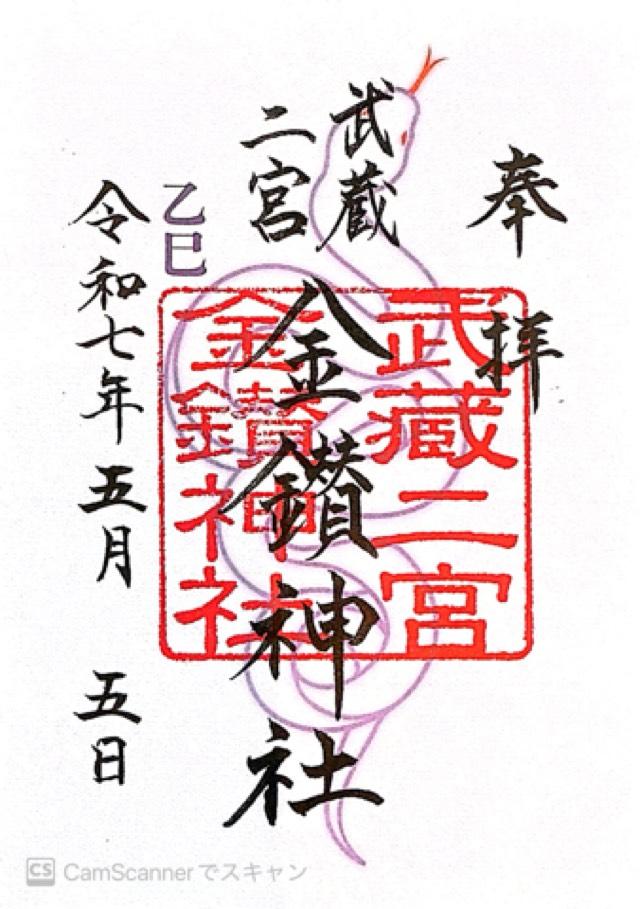 奉拝
武蔵
二宮
金鑚神社
武蔵二宮
金鑚神社
乙巳
令和七年五月五日
CS CamScannerでスキャン